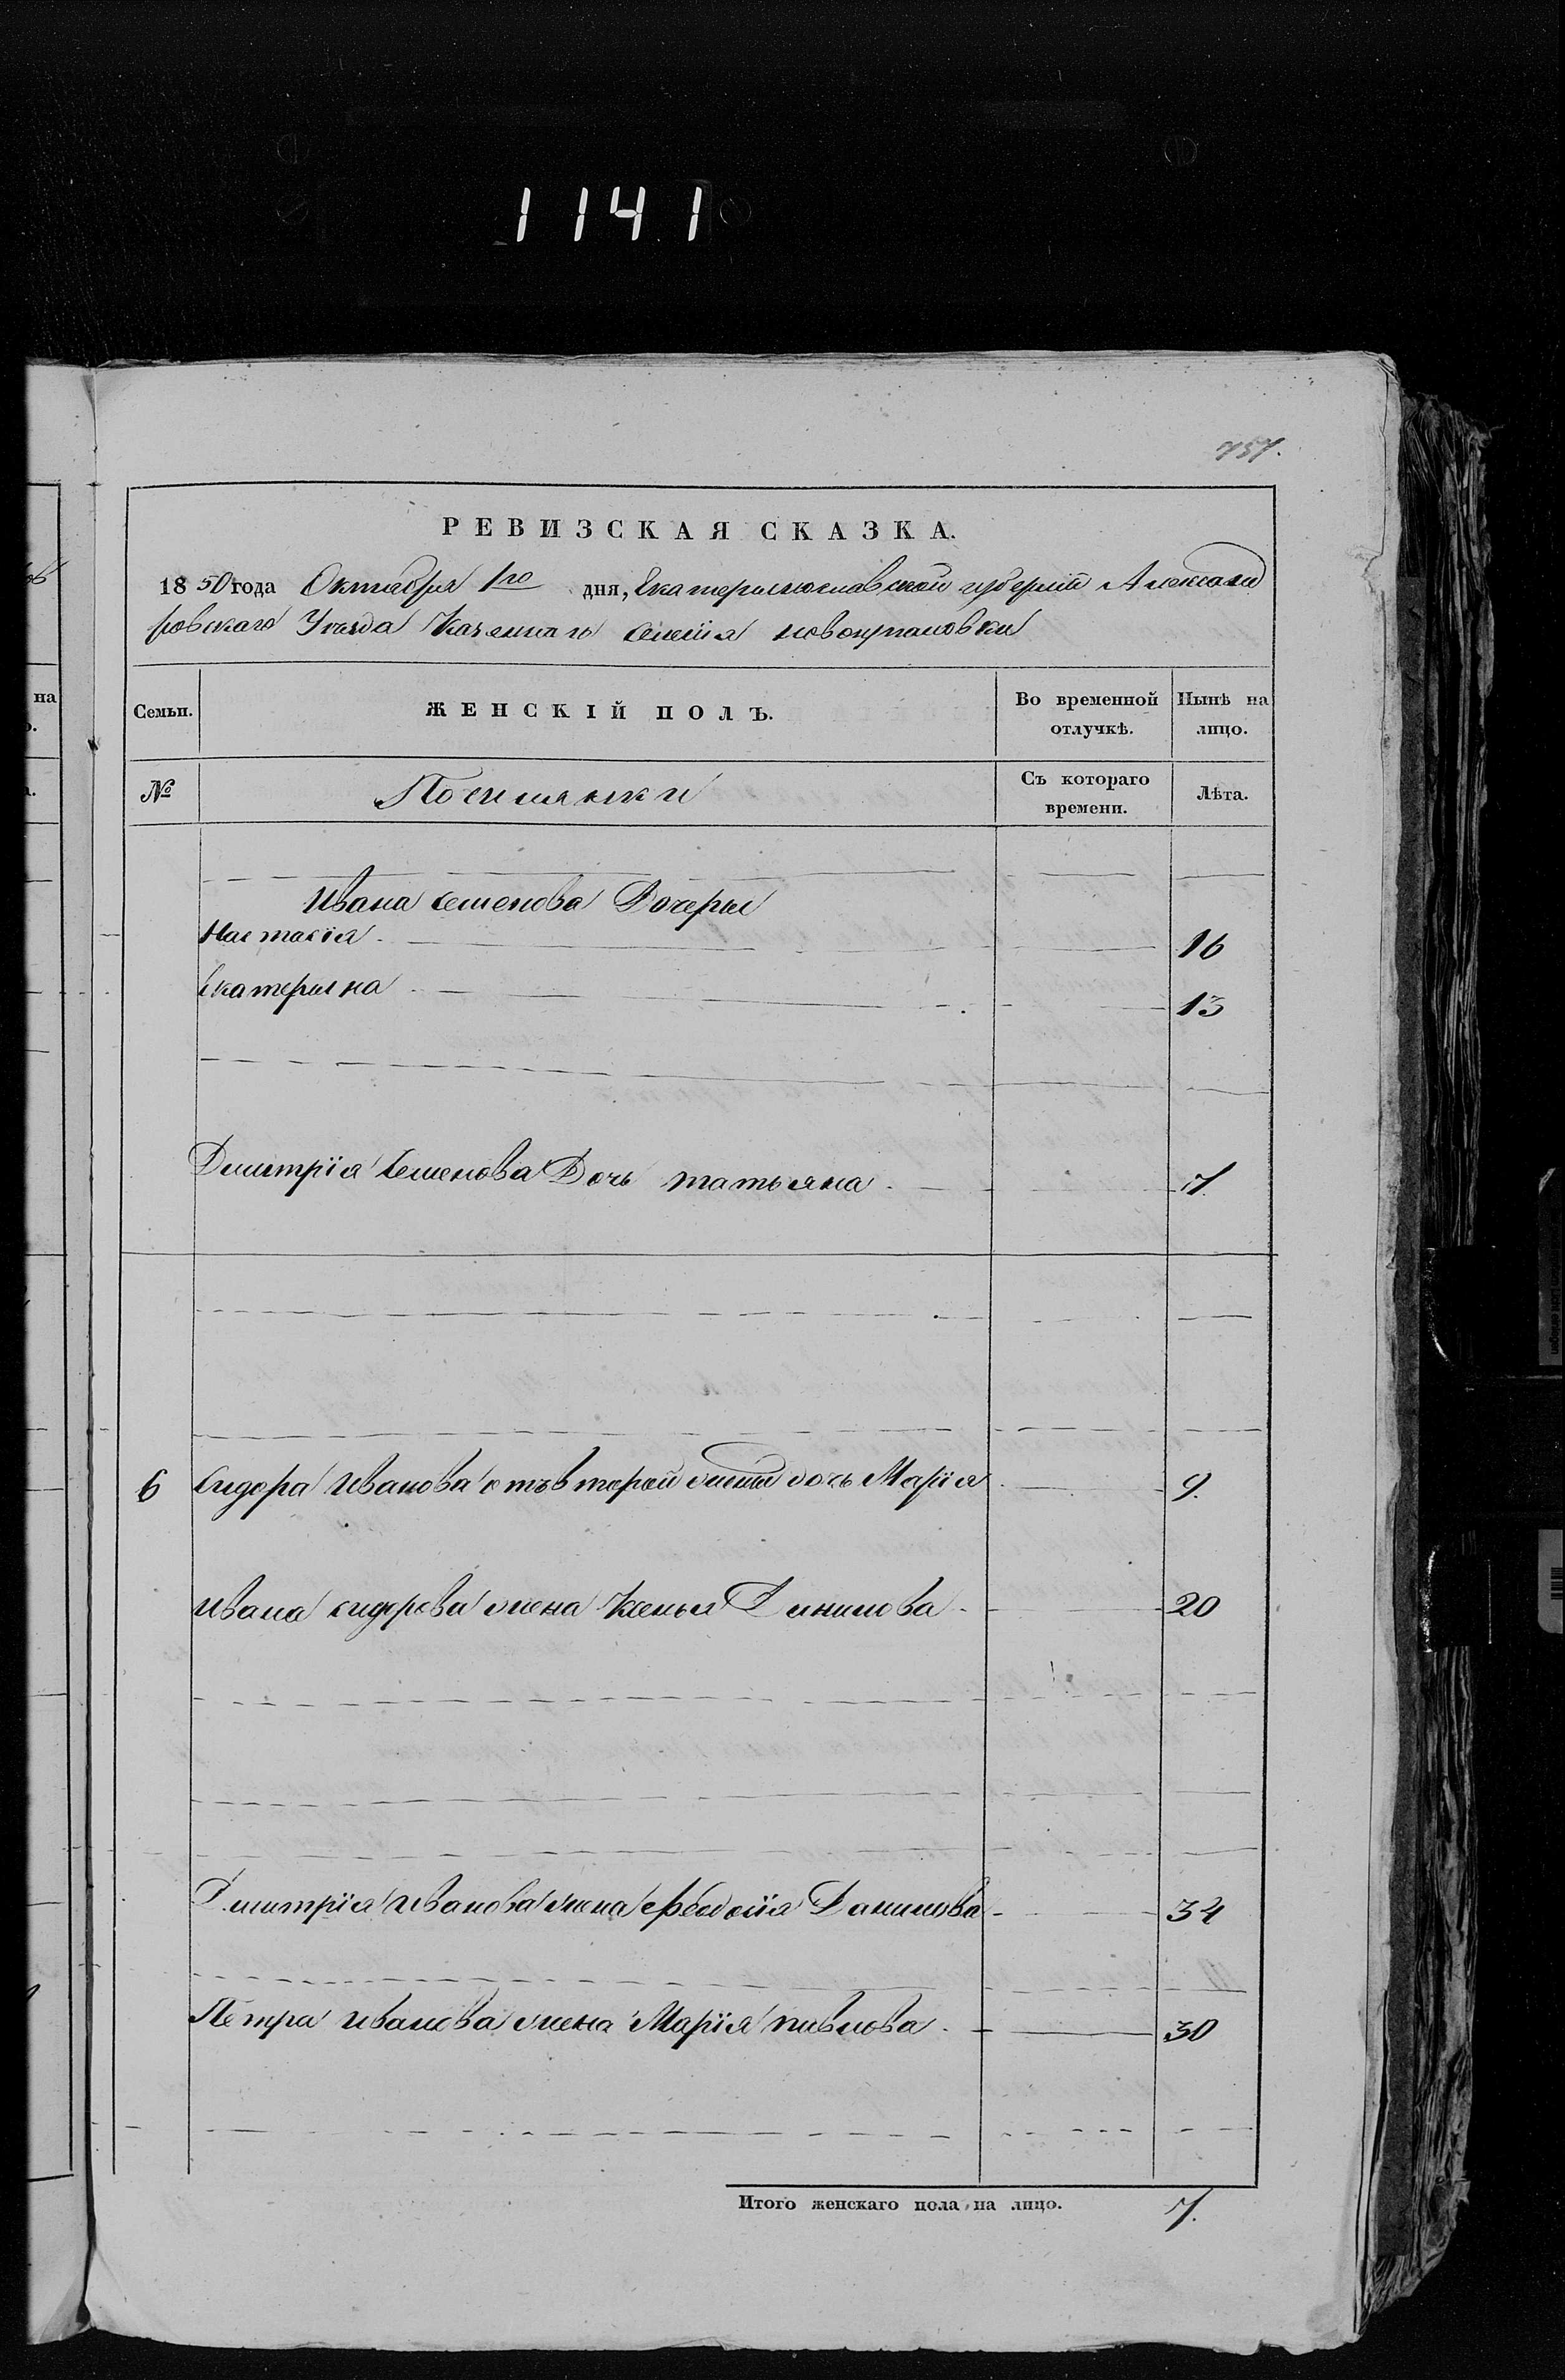 1141
757.
на
РЕВИЗСКАЯ СКАЗКА.
1850 года Октября 1го дня, Екатеринославской губерніи Александ
ровскаго Уезда Казеннаго селенія
Семьи.
ЖЕНСКІЙ ПОЛЪ.
Во временной отлучкѣ.
Нынѣ на лицо.
№
Поселянки
Съ котораго времени.
Лѣта.
Ивана семенова Дочери
Настасія 16
Екатерина 13
Дмитрія Семенова Дочь татьяна 7
6 Сидора Иванова отъ второй жены дочь Марія 9.
Ивана сидорова жена Ксенья Данилова 20
Дмитрія Иванова жена Феодосія Данилова 34
Петра иванова жена Марія павлова 30
Итого женскаго пола на лицо. 7.